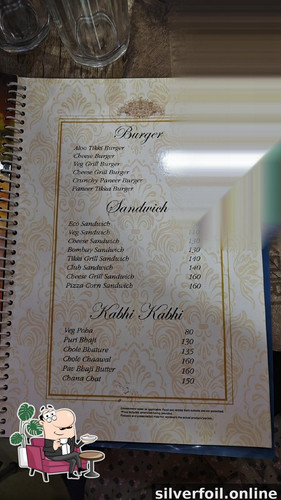 Burger
Aloo Tikki Burger
Cheese Burger
Veg Grill Burger
Cheese Grill Burger
Crunchy Paneer Burger
Paneer Tikaa Burger
Sandwich
Eco Sandwich
Veg Sandwich
Cheese Sandwich
Bombay Sandwich 130
Tikki Grill Sandwich 140
Club Sandwich 140
Cheese Grill Sandwich 160
Pizza Corn Sandwich 160
Kabhi Kabhi
Veg Poha 80
Puri Bhaji 130
Chole Bhature 135
Chole Chaawal 160
Pav Bhaji Butter 160
Chana Chat 150
silverfoil.online